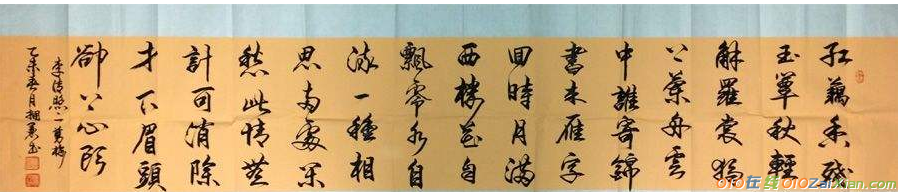 紅藕香殘
玉簟秋輕
解羅裳獨
上蘭舟雲
中誰寄錦
書來雁字
回時月滿
西樓花自
飄零水自
流一種相
思兩處閑
愁此情無
計可消除
才下眉頭
卻上心頭
李清照一剪梅
乙未 月 書
010在线010zaixian.com